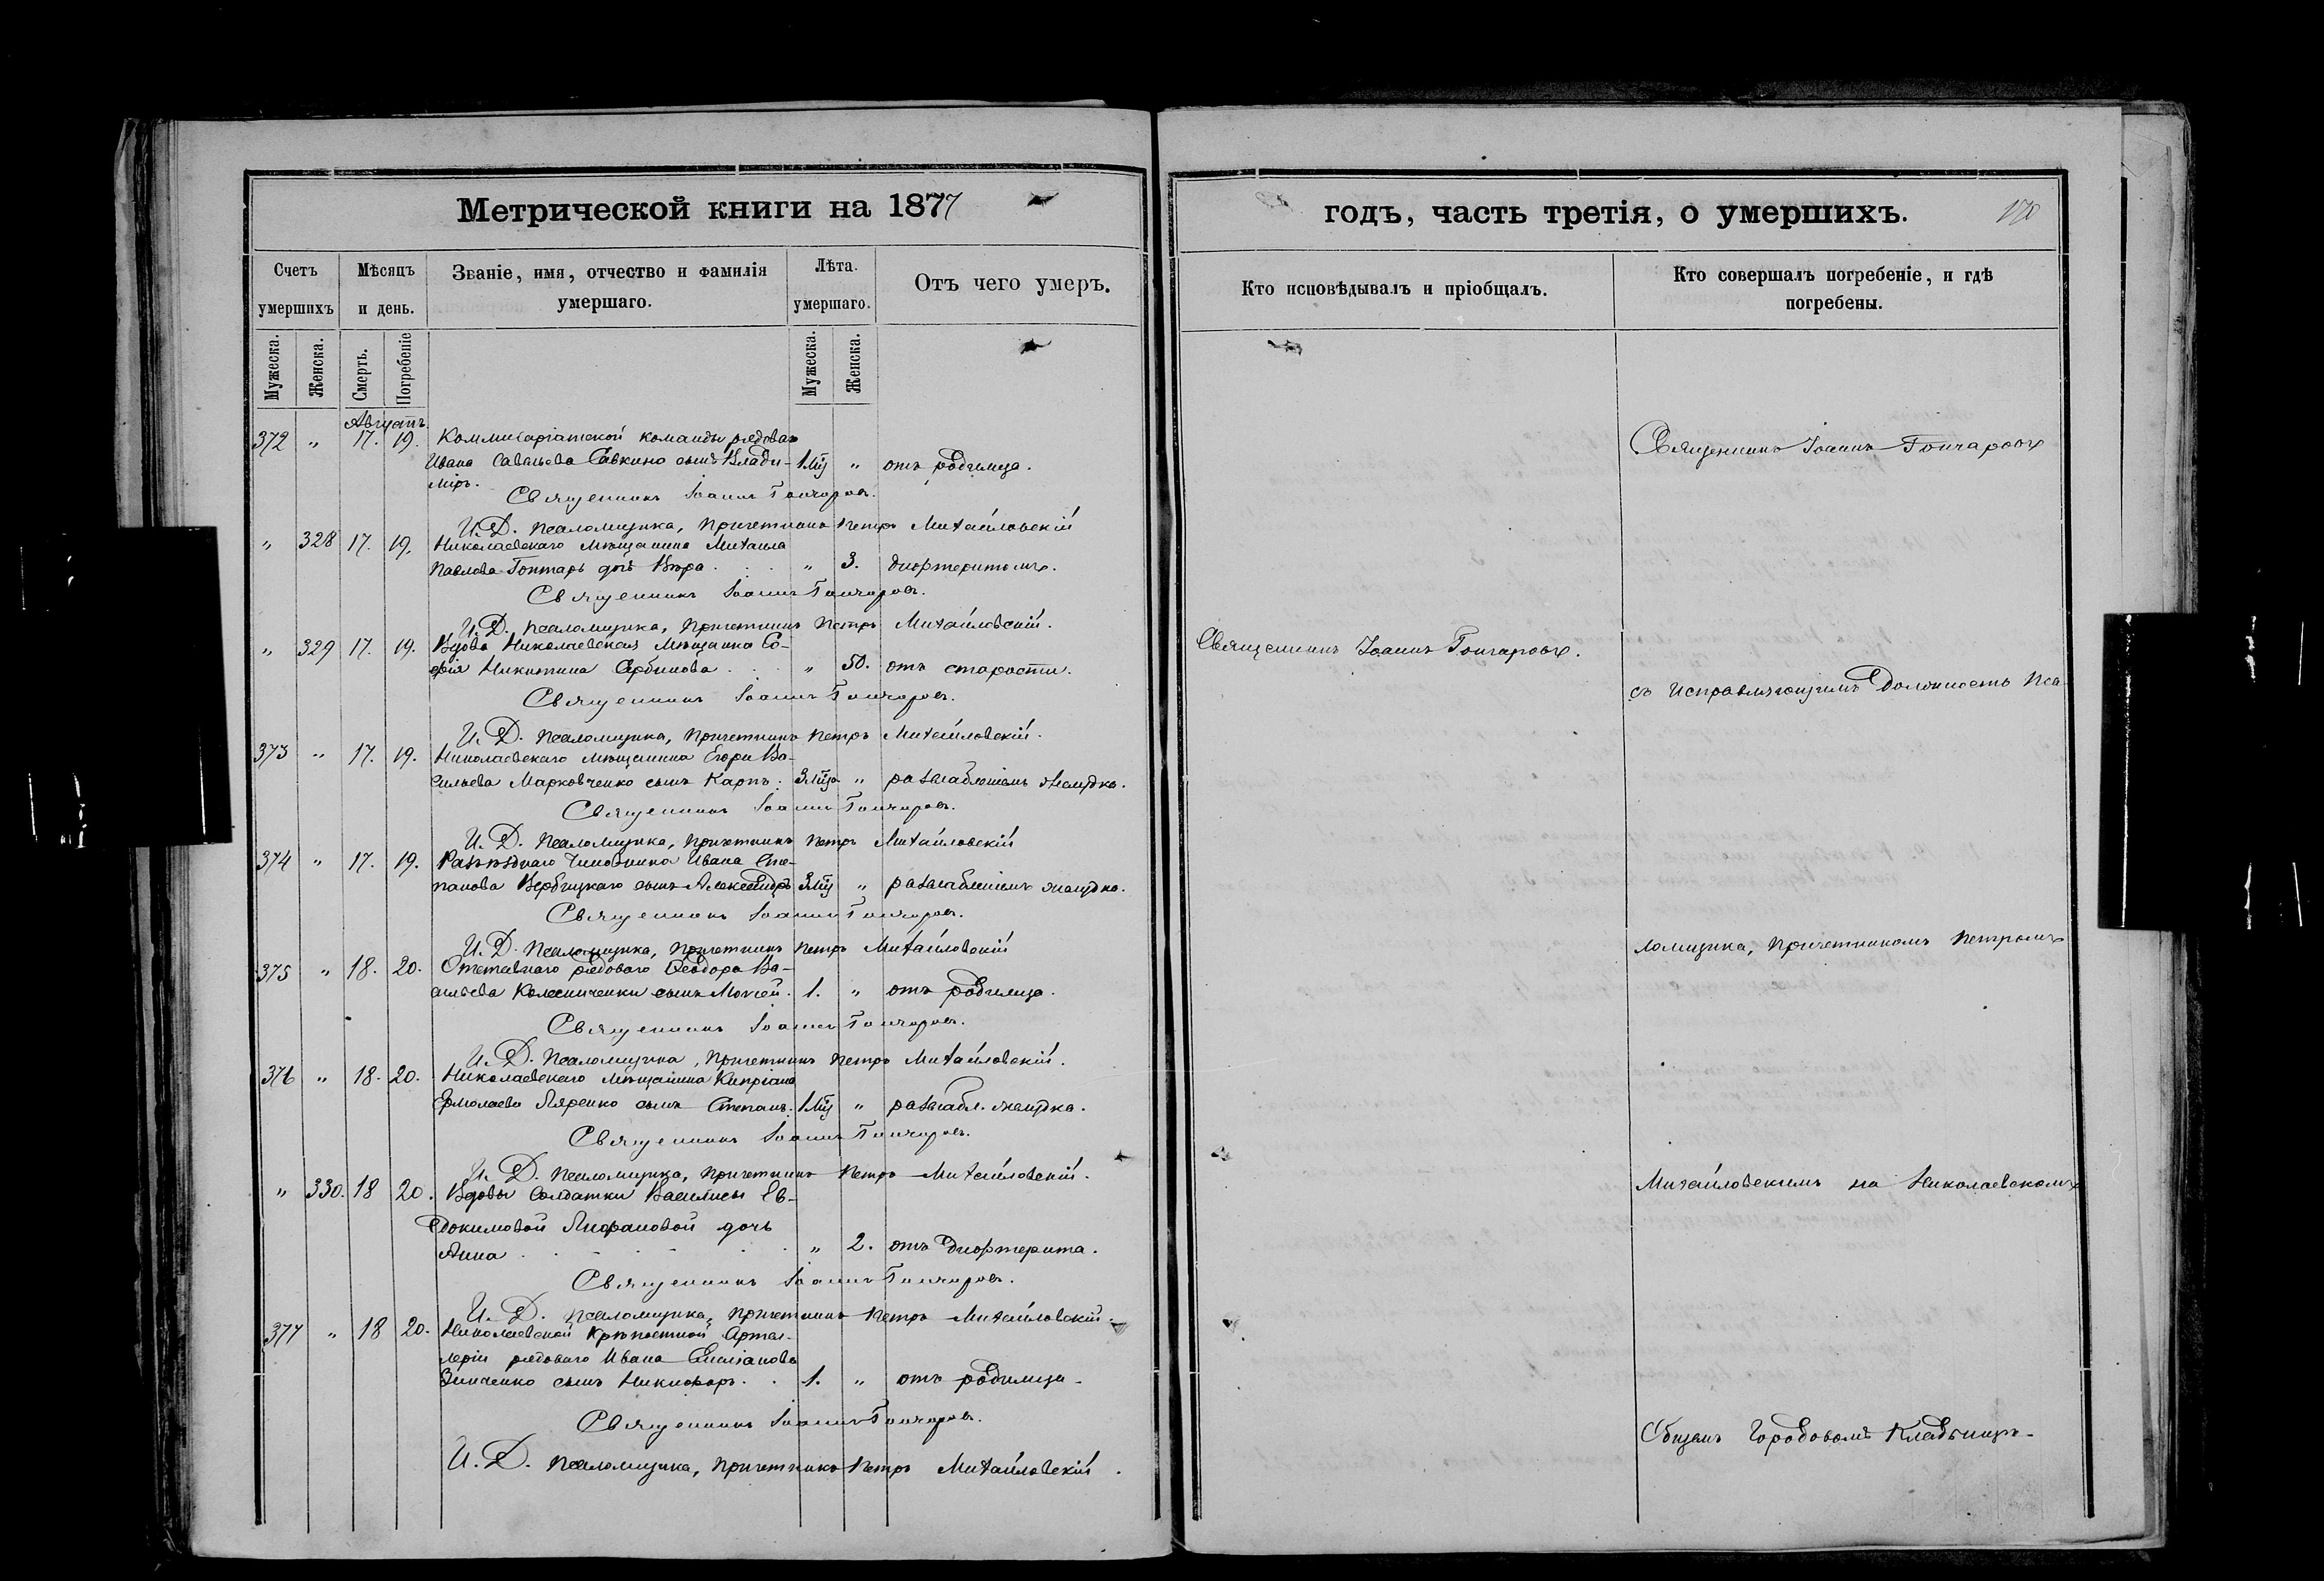 Метрической книги на 1877
Счетъ умершихъ
Мѣсяцъ и день.
Званіе, имя, отчество и фамилія умершаго.
Лѣта умершаго.
Отъ чего умеръ.
Мужеска.
Женска.
Смерть.
Погребеніе
Мужеска.
Женска.
Августъ.
372 " 17. 19. Коммисаріатской команды рядоваго
Ивана Савельева Савкина сынъ Влади- 1 Мц " отъ родимца.
міръ.
Священникъ Іоаннъ Гончаровъ.
И. Д. Псаломщика, Причетникъ Петръ Михайловскій
" 328 17. 19. Николаевскаго Мѣщанина Михаила
Павлова Гонтарь дочь Вѣра . . . " 3. дифтеритомъ.
Священникъ Іоаннъ Гончаровъ.
И. Д. Псаломщика, Причетникъ Петръ Михайловскій.
" 329 17. 19. Вдова Николаевская Мѣщанка Со-
фія Никитина Сербинова . . . " 50. отъ старости.
Священникъ Іоаннъ Гончаровъ.
И. Д. Псаломщика, Причетникъ Петръ Михайловскій.
373 " 17. 19. Николаевскаго Мѣщанина Егора Ва-
сильева Марковченко сынъ Карпъ. 3 Мца " разслабленіемъ желудка.
Священникъ Іоаннъ Гончаровъ.
И. Д. Псаломщика, Причетникъ Петръ Михайловскій
374 " 17. 19. Чиновника Ивана Сте-
панова Вербицкаго сынъ Александръ 3 Мц " разслабленіемъ желудка.
Священникъ Іоаннъ Гончаровъ.
И. Д. Псаломщика, Причетникъ Петръ Михайловскій
375 " 18. 20. Отставнаго рядоваго Ѳеодора Ва-
сильева Колесниченки сынъ Моисей. 1. " отъ родимца.
Священникъ Іоаннъ Гончаровъ.
И. Д. Псаломщика, Причетникъ Петръ Михайловскій.
376 " 18. 20. Николаевскаго Мѣщанина Кипріана
Ермолаева сынъ Степанъ. 1 Мц " разслабл. желудка.
Священникъ Іоаннъ Гончаровъ.
И. Д. Псаломщика, Причетникъ Петръ Михайловскій.
" 330. 18 20. Вдовы Солдатки Василисы Ев-
докимовой дочь
Анна . . . . . . " 2. отъ дифтерита.
Священникъ Іоаннъ Гончаровъ.
И. Д. Псаломщика, Причетникъ Петръ Михайловскій.
377 " 18 20. Николаевской Крѣпостной Артил-
леріи рядоваго Ивана Емиліанова
Зинченко сынъ Никифоръ. . 1. " отъ родимца.
Священникъ Іоаннъ Гончаровъ.
И. Д. Псаломщика, Причетникъ Петръ Михайловскій.
годъ, часть третія, о умершихъ.
Кто исповѣдывалъ и пріобщалъ.
Кто совершалъ погребеніе, и гдѣ погребены.
Священникъ Іоаннъ Гончаровъ
Священникъ Іоаннъ Гончаровъ.
съ Исправляющимъ Должность Пса-
ломщика, Причетникомъ Петромъ
Михайловскимъ на Николаевскомъ
Общемъ Городовомъ Кладбищѣ.